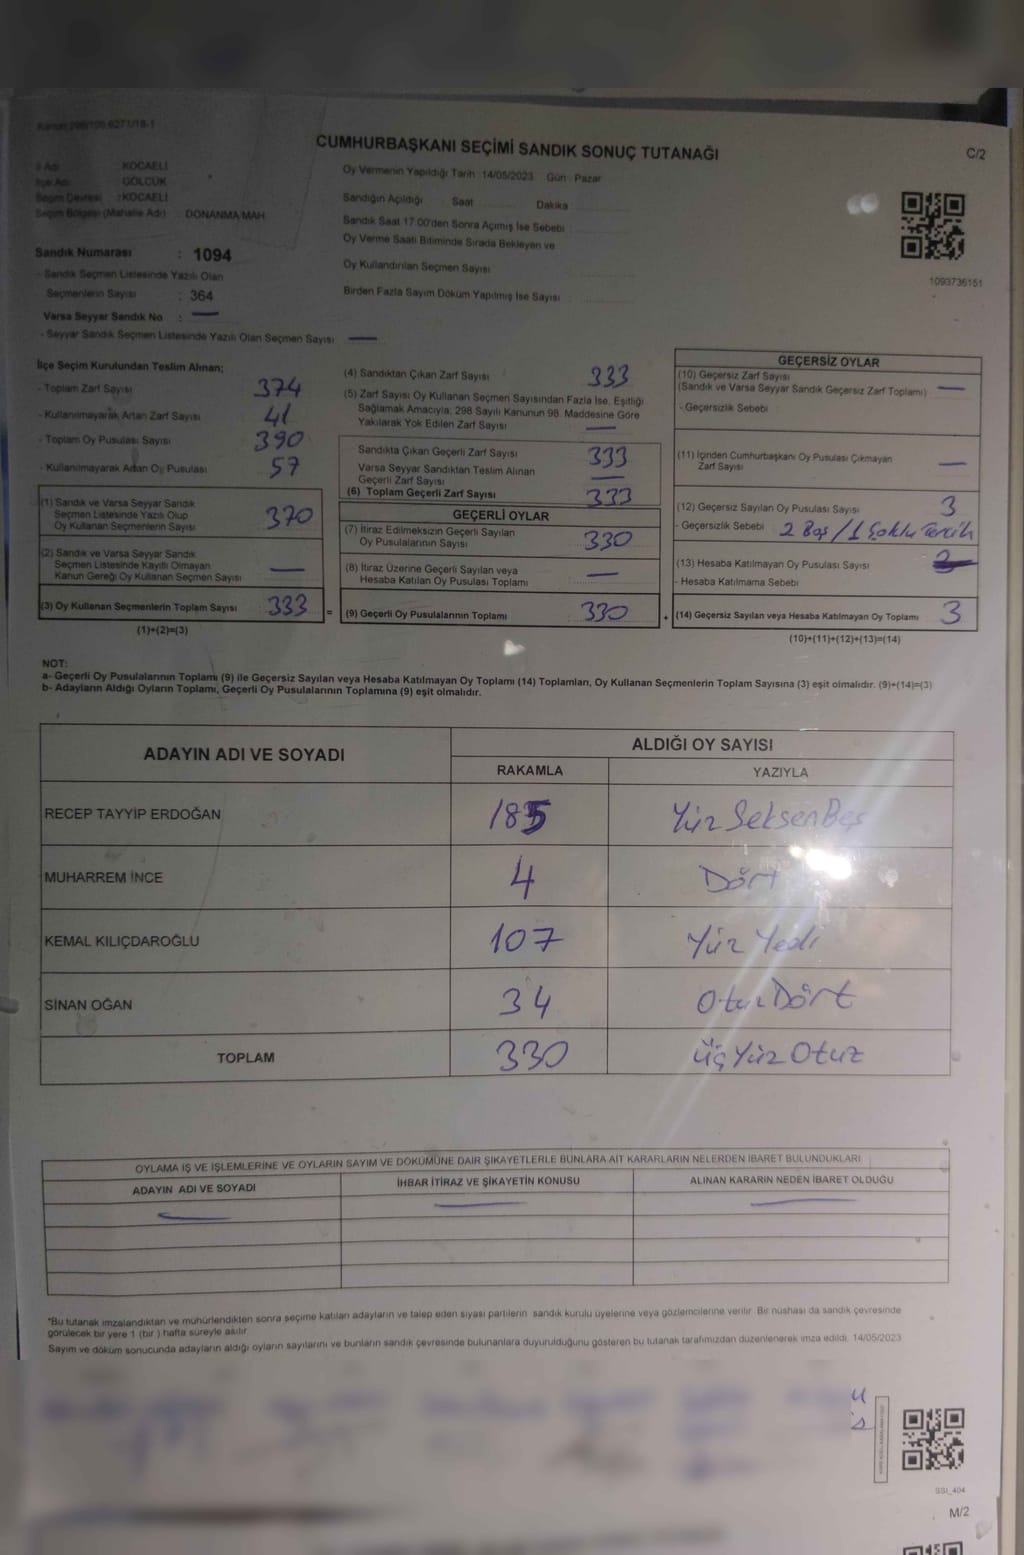 Kanun:298/105,6271/18-1
CUMHURBAŞKANI SEÇİMİ SANDIK SONUÇ TUTANAĞI
C/2
İl Adı : KOCAELİ
İlçe Adı : GÖLCÜK
Seçim Çevresi : KOCAELİ
Seçim Bölgesi (Mahalle Adı) : DONANMA MAH
Oy Vermenin Yapıldığı Tarih :14/05/2023 Gün : Pazar
Sandığın Açıldığı Saat Dakika
Sandık Saat 17:00'den Sonra Açımış İse Sebebi
Oy Verme Saati Bitiminde Sırada Bekleyen ve
Oy Kullandırılan Seçmen Sayısı
Birden Fazla Sayım Döküm Yapılmış İse Sayısı
1093736151
Sandık Numarası : 1094
- Sandık Seçmen Listesinde Yazılı Olan
Seçmenlerin Sayısı : 364
Varsa Seyyar Sandık No : —
- Seyyar Sandık Seçmen Listesinde Yazılı Olan Seçmen Sayısı —
İlçe Seçim Kurulundan Teslim Alınan;
- Toplam Zarf Sayısı 374
- Kullanılmayarak Artan Zarf Sayısı 41
- Toplam Oy Pusulası Sayısı 390
- Kullanılmayarak Artan Oy Pusulası 57
(1) Sandık ve Varsa Seyyar Sandık
Seçmen Listesinde Yazılı Olup
Oy Kullanan Seçmenlerin Sayısı 370
(2) Sandık ve Varsa Seyyar Sandık
Seçmen Listesinde Kayıtlı Olmayan
Kanun Gereği Oy Kullanan Seçmen Sayısı —
(3) Oy Kullanan Seçmenlerin Toplam Sayısı 333 =
(1)+(2)=(3)
(4) Sandıktan Çıkan Zarf Sayısı 333
(5) Zarf Sayısı Oy Kullanan Seçmen Sayısından Fazla İse, Eşitliği
Sağlamak Amacıyla; 298 Sayılı Kanunun 98. Maddesine Göre
Yakılarak Yok Edilen Zarf Sayısı —
Sandıkta Çıkan Geçerli Zarf Sayısı 333
Varsa Seyyar Sandıktan Teslim Alınan
Geçerli Zarf Sayısı —
(6) Toplam Geçerli Zarf Sayısı 333
GEÇERLİ OYLAR
(7) İtiraz Edilmeksizin Geçerli Sayılan
Oy Pusulalarının Sayısı 330
(8) İtiraz Üzerine Geçerli Sayılan veya
Hesaba Katılan Oy Pusulası Toplamı —
(9) Geçerli Oy Pusulalarının Toplamı 330 +
GEÇERSİZ OYLAR
(10) Geçersiz Zarf Sayısı
(Sandık ve Varsa Seyyar Sandık Geçersiz Zarf Toplamı) —
- Geçersizlik Sebebi
(11) İçinden Cumhurbaşkanı Oy Pusulası Çıkmayan
Zarf Sayısı —
(12) Geçersiz Sayılan Oy Pusulası Sayısı 3
- Geçersizlik Sebebi 2 Boş / 1 Çoklu Tercih
(13) Hesaba Katılmayan Oy Pusulası Sayısı
- Hesaba Katılmama Sebebi
(14) Geçersiz Sayılan veya Hesaba Katılmayan Oy Toplamı 3
(10)+(11)+(12)+(13)=(14)
NOT:
a- Geçerli Oy Pusulalarının Toplamı (9) ile Geçersiz Sayılan veya Hesaba Katılmayan Oy Toplamı (14) Toplamları, Oy Kullanan Seçmenlerin Toplam Sayısına (3) eşit olmalıdır. (9)+(14)=(3)
b- Adayların Aldığı Oyların Toplamı, Geçerli Oy Pusulalarının Toplamına (9) eşit olmalıdır.
ADAYIN ADI VE SOYADI ALDIĞI OY SAYISI
RAKAMLA YAZIYLA
RECEP TAYYİP ERDOĞAN 185 Yüz Seksen Beş
MUHARREM İNCE 4 Dört
KEMAL KILIÇDAROĞLU 107 Yüz Yedi
SİNAN OĞAN 34 Otuz Dört
TOPLAM 330 Üç Yüz Otuz
OYLAMA İŞ VE İŞLEMLERİNE VE OYLARIN SAYIM VE DÖKÜMÜNE DAİR ŞİKAYETLERLE BUNLARA AİT KARARLARIN NELERDEN İBARET BULUNDUKLARI
ADAYIN ADI VE SOYADI İHBAR İTİRAZ VE ŞİKAYETİN KONUSU ALINAN KARARIN NEDEN İBARET OLDUĞU
— — —
*Bu tutanak imzalandıktan ve mühürlendikten sonra seçime katılan adayların ve talep eden siyasi partilerin sandık kurulu üyelerine veya gözlemcilerine verilir. Bir nüshası da sandık çevresinde
görülecek bir yere 1 (bir ) hafta süreyle asılır.
Sayım ve döküm sonucunda adayların aldığı oyların sayılarını ve bunların sandık çevresinde bulunanlara duyurulduğunu gösteren bu tutanak tarafımızdan düzenlenerek imza edildi. 14/05/2023
SSI_404
M/2